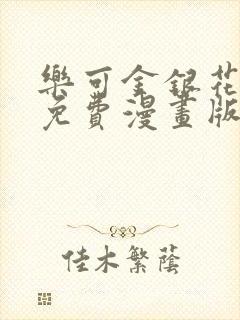 樂可金銀花
免費漫畫版
佳木繁蔭